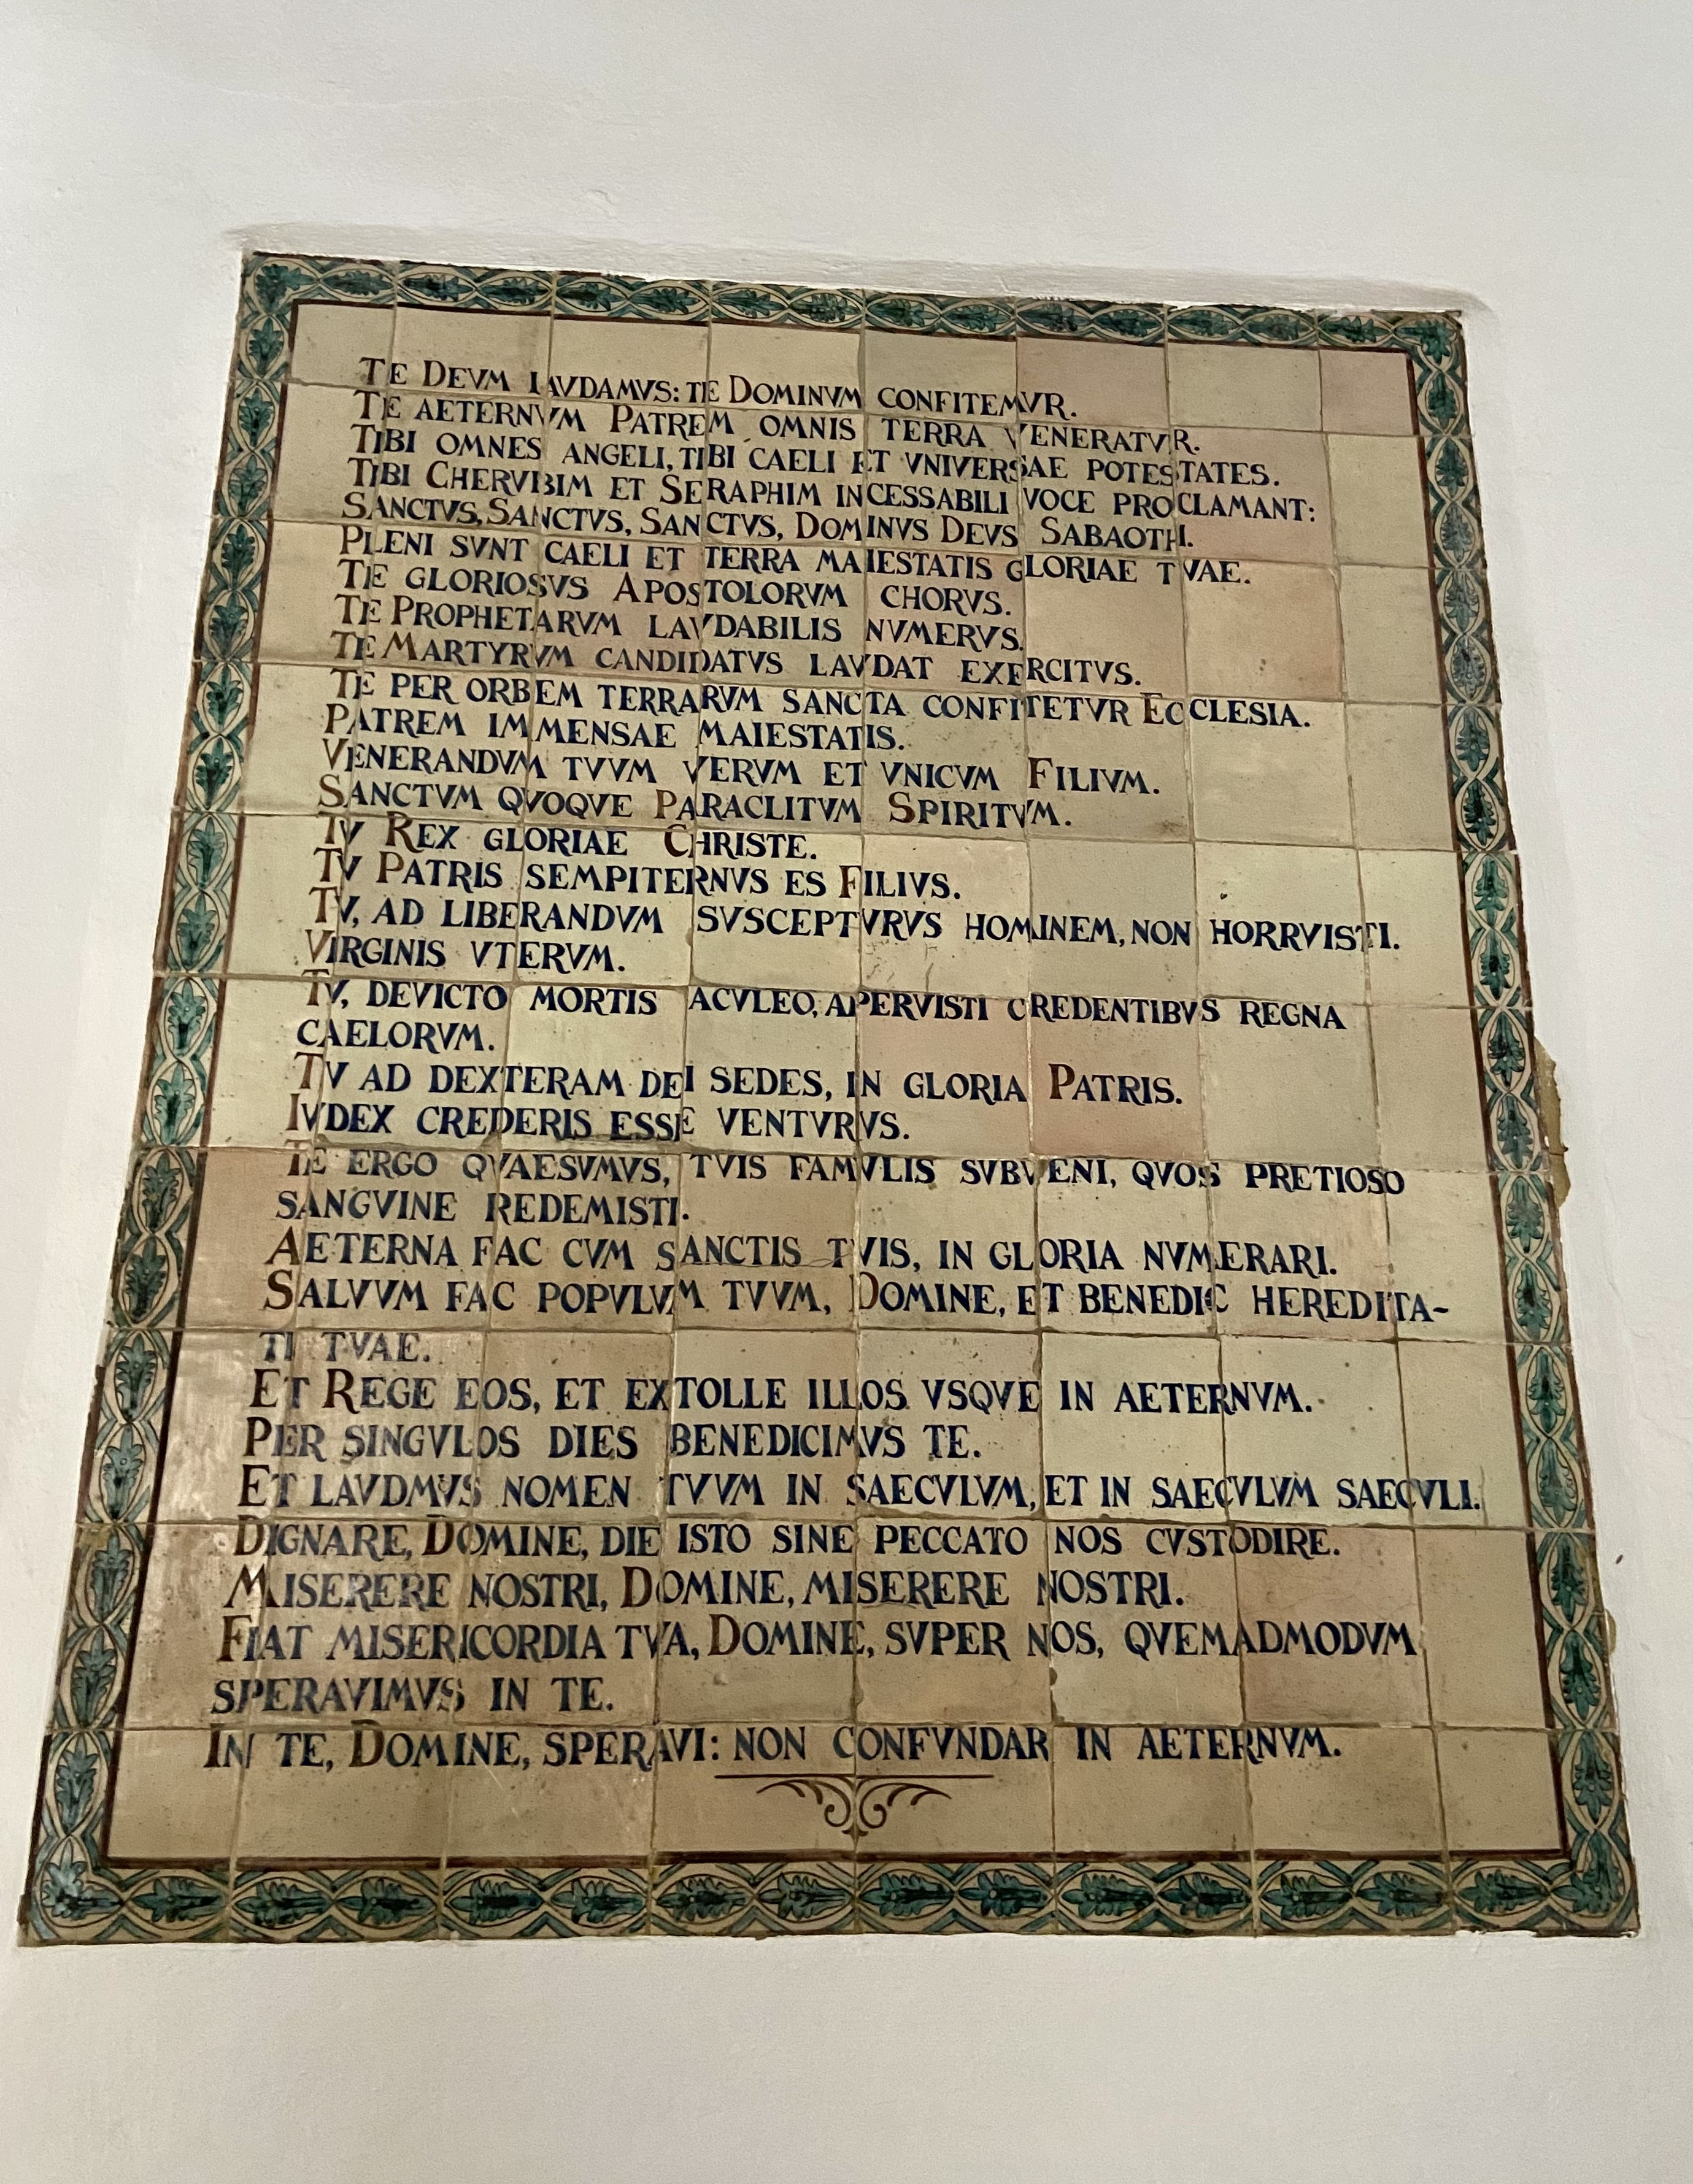 TE DEVM LAVDAMVS: TE DOMINVM CONFITEMVR.
TE AETERNVM PATREM OMNIS TERRA VENERATVR.
TIBI OMNES ANGELI, TIBI CAELI ET VNIVERSAE POTESTATES.
TIBI CHERVBIM ET SERAPHIM INCESSABILI VOCE PROCLAMANT:
SANCTVS, SANCTVS, SANCTVS, DOMINVS DEVS SABAOTH.
PLENI SVNT CAELI ET TERRA MAIESTATIS GLORIAE TVAE.
TE GLORIOSVS APOSTOLORVM CHORVS.
TE PROPHETARVM LAVDABILIS NVMERVS.
TE MARTYRVM CANDIDATVS LAVDAT EXERCITVS.
TE PER ORBEM TERRARVM SANCTA CONFITETVR ECCLESIA.
PATREM IMMENSAE MAIESTATIS.
VENERANDVM TVUM VERVM ET VNICVM FILIVM.
SANCTVM QVOQVE PARACLITVM SPIRITVM.
TV REX GLORIAE CHRISTE.
TV PATRIS SEMPITERNVS ES FILIVS.
TV, AD LIBERANDVM SVSCEPTVRVS HOMINEM, NON HORRVISTI.
VIRGINIS VTERVM.
TV, DEVICTO MORTIS ACVLEO, APERVISTI CREDENTIBVS REGNA
CAELORVM.
TV AD DEXTERAM DEI SEDES, IN GLORIA PATRIS.
IVDEX CREDERIS ESSE VENTVRVS.
TE ERGO QVAESVMVS, TVIS FAMVLIS SVBVENI, QVOS PRETIOSO
SANGVINE REDEMISTI.
AETERNA FAC CVM SANCTIS TVIS, IN GLORIA NVMERARI.
SALVUM FAC POPVLVM TVUM, DOMINE, ET BENEDIC HEREDITA-
TI TVAE.
ET REGE EOS, ET EXTOLLE ILLOS VSQVE IN AETERNVM.
PER SINGVLOS DIES BENEDICIMVS TE.
ET LAVDMVS NOMEN TVUM IN SAECVLVM, ET IN SAECVLVM SAECVLI.
DIGNARE, DOMINE, DIE ISTO SINE PECCATO NOS CVSTODIRE.
MISERERE NOSTRI, DOMINE, MISERERE NOSTRI.
FIAT MISERICORDIA TVA, DOMINE, SVPER NOS, QVEMADMODVM
SPERAVIMVS IN TE.
IN TE, DOMINE, SPERAVI: NON CONFVNDAR IN AETERNVM.